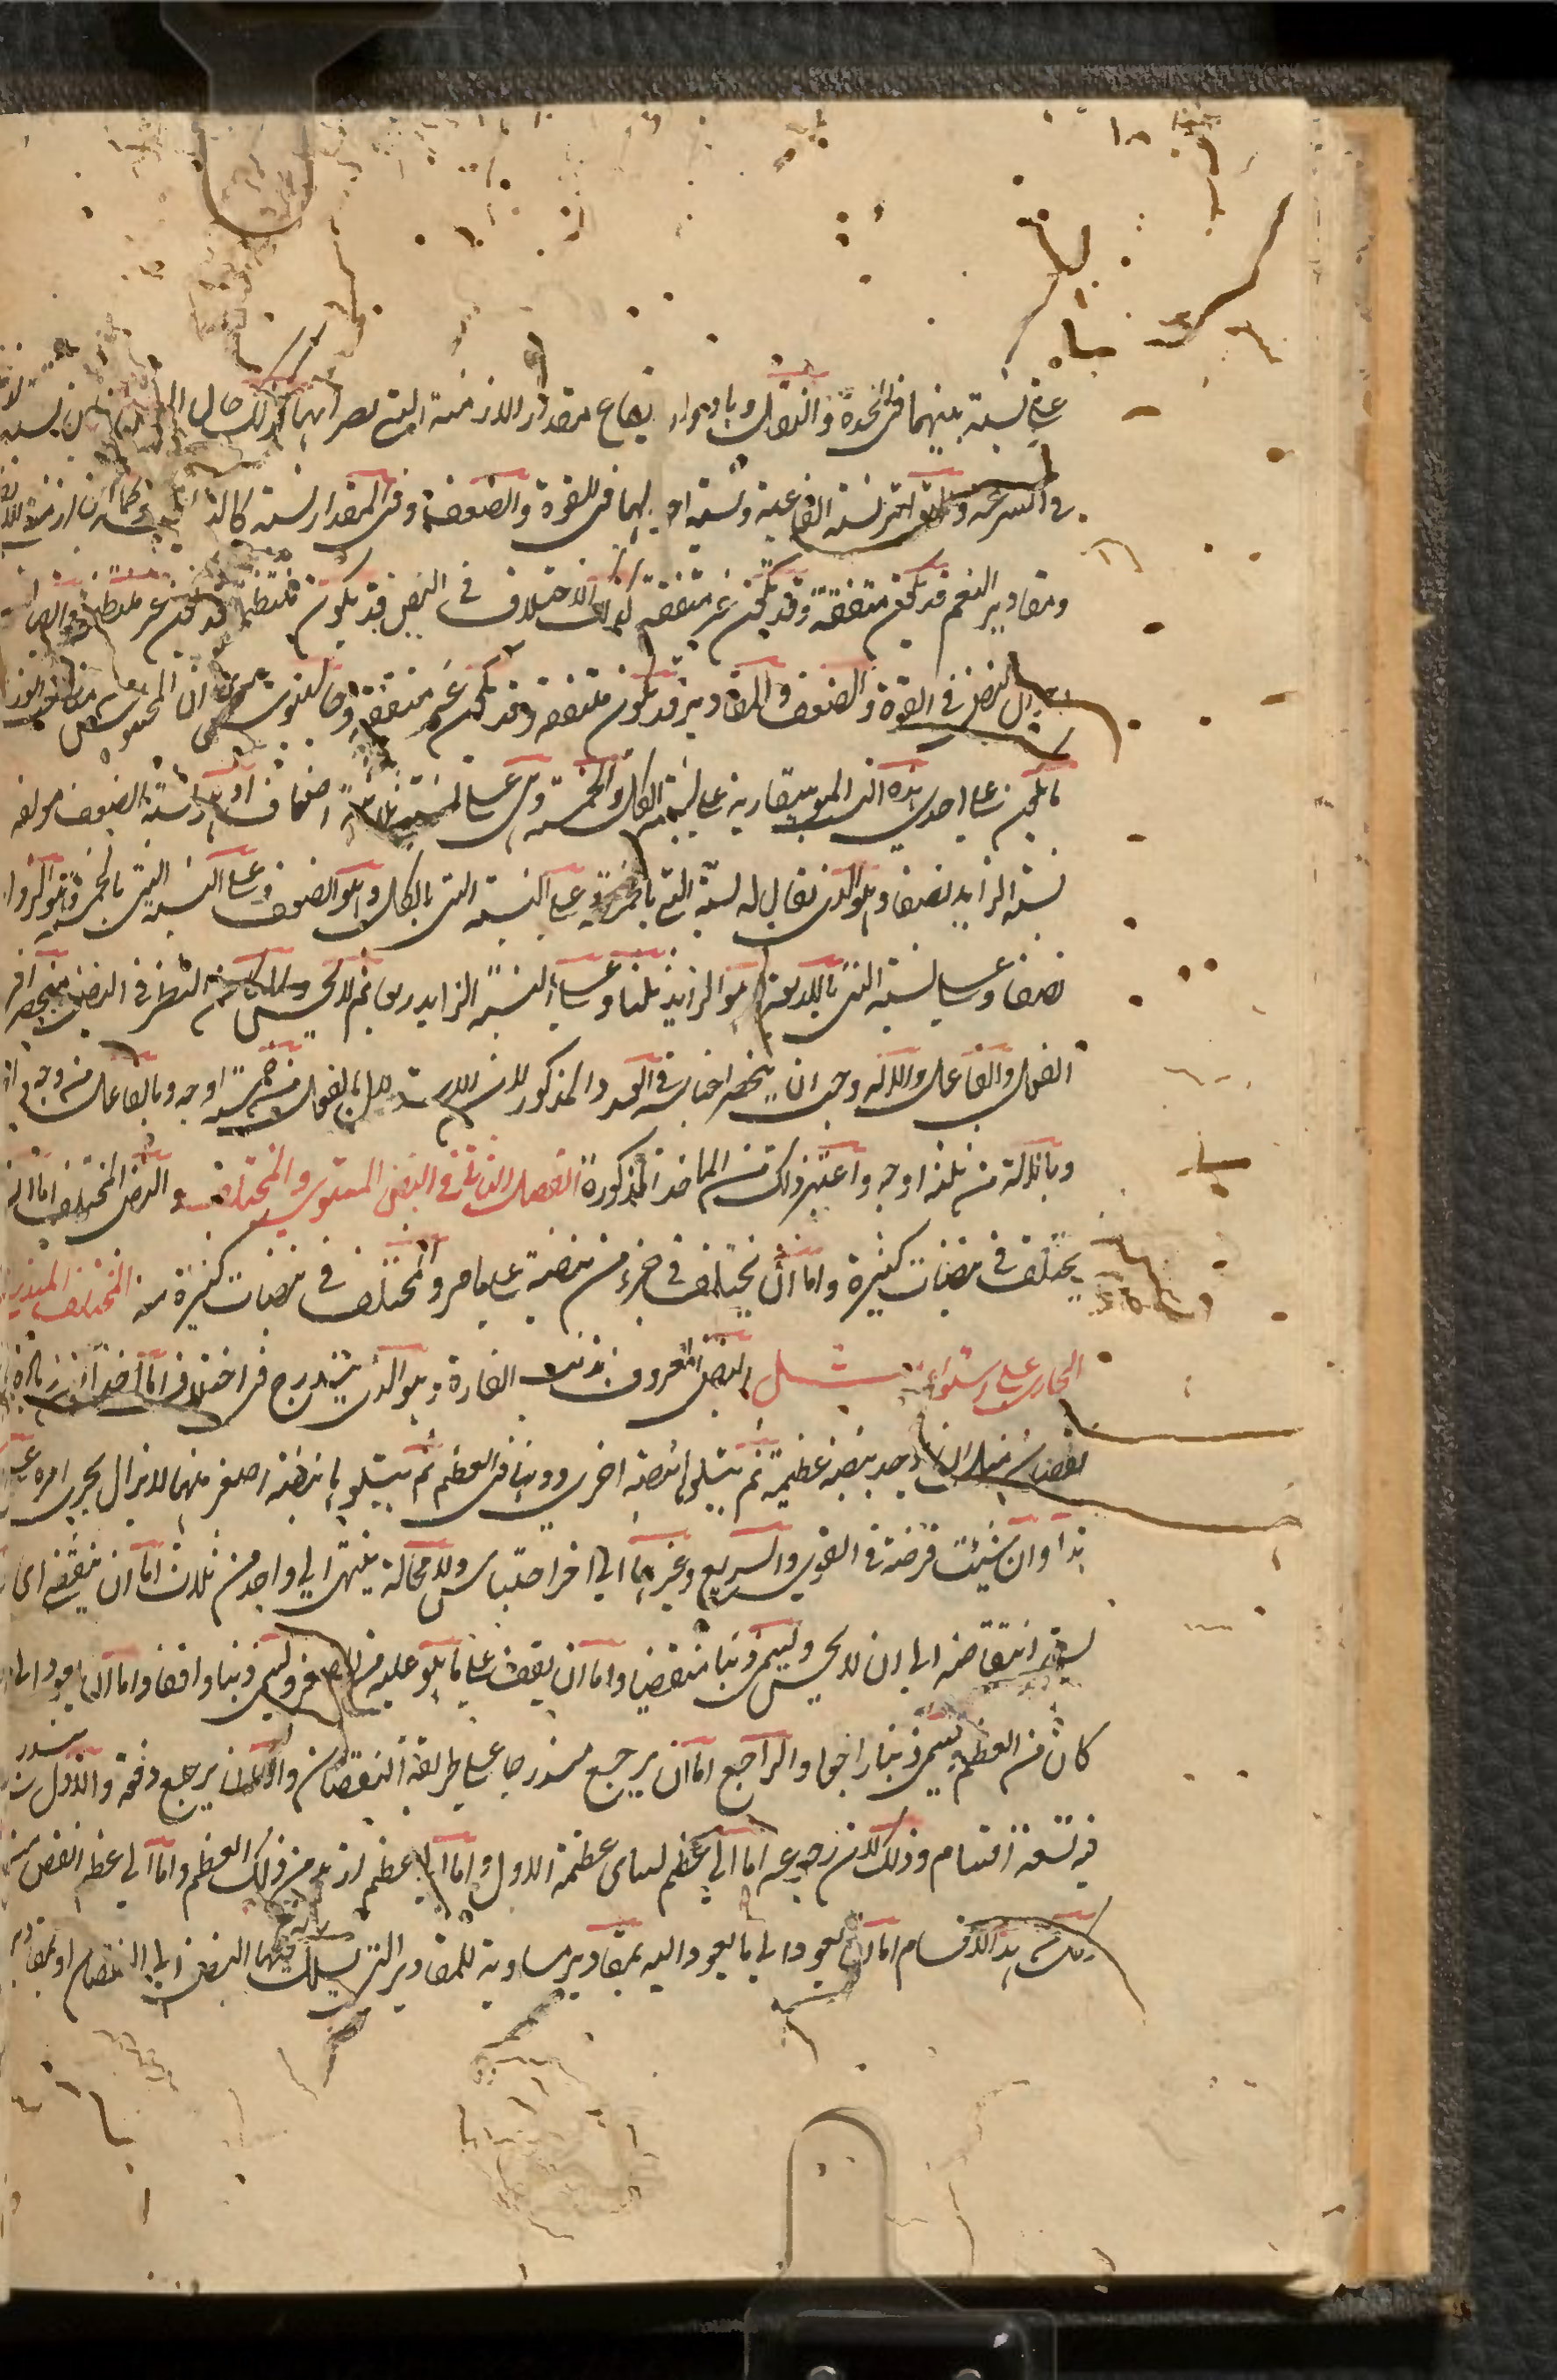 على نسبة بينهما فى الحدة والثقل وبادوار ايقاع مقدار الازمنة التى بصر انها كذلك حال نسبة
فى السرعة والتواتر نسبة ايقاعية ونسبة احوالهما فى القوة والضعف وفى المقدار نسبة كالتاليفية وكما ان ازمنة الايقاع
ومقادير النغم قد تكون متفقة وقد تكون غير متفقة كذلك الاختلاف فى النبض قد يكون منتظما وقد يكون غير منتظم وايضا
احوال النبض فى القوة والضعف والمقادير قد تكون متفقة وقد تكون غير متفقة وجالينوس يرى ان المحسوس من مناسبات الوزن
ما يكون على احدى هذه النسب الموسيقارية على نسبة الكل والخمسة وهى على نسبة ثلاثة اضعاف اذ هى نسبة الضعف مولفة
نسبة الزايد نصفا وهو الذى يقال له نسبة التى بالخمسة وعلى النسبة التى بالكل وهو الضعف وعلى النسبة التى بالخمسة وهو الزايد
نصفا وعلى نسبة التى بالاربعة وهو الزايد ثلثا وعلى نسبة الزايد ربعا ثم لا يحس ولما كان النظر فى النبض منحصرا فى
الفعل والفاعل والالة وجب ان ينحصر اجناسه فى العدد المذكور لان الاستدلال بالفعل من خمسة اوجه وبالفاعل من وجه
وبالالة من ثلثة اوجه واعتبر ذلك من الماخذ المذكورة الفصل الثالث فى النبض المستوى والمختلف والنبض المختلف اما ان
يختلف فى نبضات كثيرة واما ان يختلف فى جزء من نبضة على ما مر والمختلف فى نبضات كثيرة منه المختلف المتدرج
الجارى على استواء مثل النبض المعروف بذنب الفارة وهو الذى يتدرج فى اختلاف اما اخذا من زيادة
نقصان مثل ان يوجد نبضة عظيمة ثم يتلوها نبضة اخرى دونها فى العظم ثم يتلوها نبضة اصغر منهما لا يزال يجرى امره على
هذا وان شئت فرضته فى القوى والسريع وغيرهما الى اخر اجناس ولا محالة ينتهى الى واحد من ثلاث اما ان ينقضى اى
يستمر انتقاصه الى ان لا يحس ويسمى ذنبا منقضيا واما ان يقف على ما هو عليه من الصغر ويسمى ذنبا واقفا واما ان يعود الى ما
كان من العظم ويسمى ذنبا راجعا والراجع اما ان يرجع متدرجا على طريقة النقصان واما ان يرجع دفعة والاول
فيه تسعة اقسام وذلك لان رجوعه اما الى عظم يساوى عظمه الاول واما الى عظم ازيد من ذلك العظم واما الى عظم انقص منه
وكل من هذه الاقسام اما ان يعود الى ما يعود اليه بمقادير مساوية للمقادير التى سلك فيها النبض الى النقصان او بمقادير